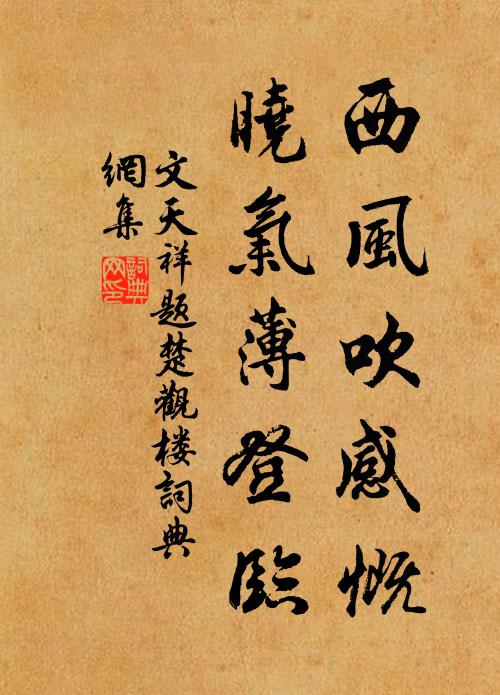 西風吹感慨
曉氣薄登臨
文天祥題楚觀楼詞典
網集
詞典
网印